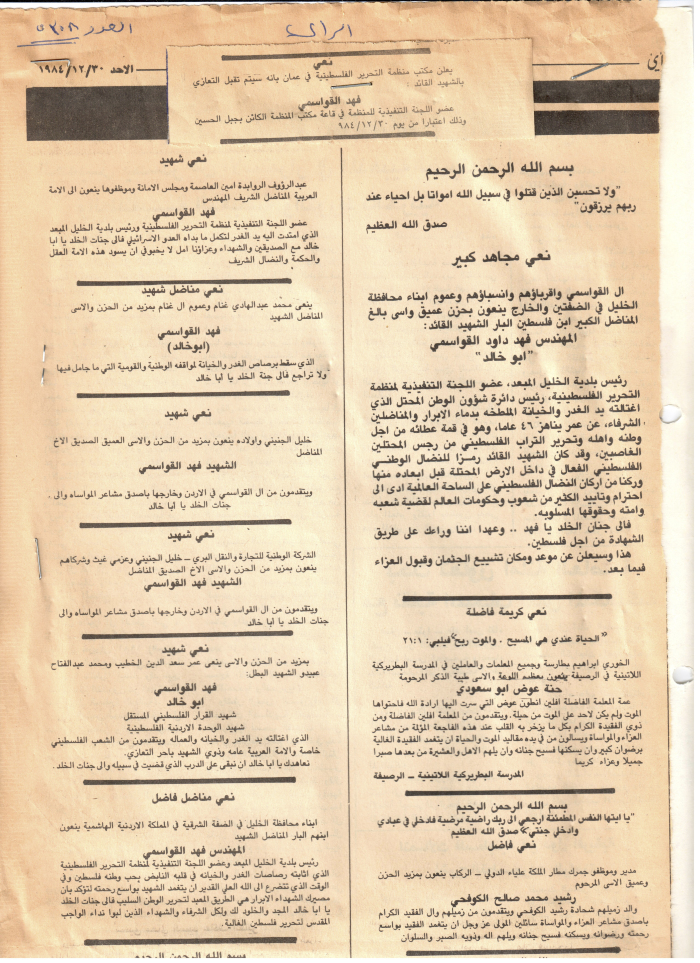 الرأي
العدد ٥٣٠٨
الاحد ١٩٨٤/١٢/٣٠
نعي
يعلن مكتب منظمة التحرير الفلسطينية في عمان بانه سيتم تقبل التعازي
بالشهيد القائد :
فهد القواسمي
عضو اللجنة التنفيذية للمنظمة في قاعة مكتب المنظمة الكائن بجبل الحسين
وذلك اعتبارا من يوم ٩٨٤/١٢/٣٠
بسم الله الرحمن الرحيم
"ولا تحسبن الذين قتلوا في سبيل الله امواتا بل احياء عند
ربهم يرزقون"
صدق الله العظيم
نعي مجاهد كبير
ال القواسمي واقرباؤهم وانسباؤهم وعموم ابناء محافظة
الخليل في الضفتين والخارج ينعون بحزن عميق واسى بالغ
المناضل الكبير ابن فلسطين البار الشهيد القائد:
المهندس فهد داود القواسمي
"ابو خالد"
رئيس بلدية الخليل المبعد، عضو اللجنة التنفيذية لمنظمة
التحرير الفلسطينية، رئيس دائرة شؤون الوطن المحتل الذي
اغتالته يد الغدر والخيانة الملطخه بدماء الابرار والمناضلين
الشرفاء، عن عمر يناهز ٤٦ عاما، وهو في قمة عطائه من اجل
وطنه واهله وتحرير التراب الفلسطيني من رجس المحتلين
الغاصبين، وقد كان الشهيد القائد رمزا للنضال الوطني
الفلسطيني الفعال في داخل الارض المحتلة قبل ابعاده منها
وركنا من اركان النضال الفلسطيني على الساحة العالمية ادى الى
احترام وتاييد الكثير من شعوب وحكومات العالم لقضية شعبه
وامته وحقوقها المسلوبه.
فالى جنان الخلد يا فهد .. وعهدا اننا وراءك على طريق
الشهادة من اجل فلسطين.
هذا وسيعلن عن موعد ومكان تشييع الجثمان وقبول العزاء
فيما بعد.
نعي كريمة فاضلة
"الحياة عندي هي المسيح . والموت ربح" فيلبي: ٢١:١
الخوري ابراهيم بطارسة وجميع المعلمات والعاملين في المدرسة البطريركية
اللاتينية في الرصيفة ينعون بعظيم اللوعة والاسى طيبة الذكر المرحومة
حنة عوض ابو سعودي
عمة المعلمة الفاضلة افلين انطون عوض التي سرت اليها ارادة الله فاحتواها
الموت ولم يكن لاحد على الموت من حيلة. ويتقدمون من المعلمة افلين الفاضلة ومن
ذوي الفقيدة الكرام بكل ما يزخر به القلب عند هذه الفاجعة المؤلة من مشاعر
العزاء والمواساة ويسالون من في يده مقاليد الموت والحياة ان يتغمد الفقيدة الغالية
برضوان كبير وان يسكنها فسيح جنانه وان يلهم الاهل والعشيرة من بعدها صبرا
جميلا وعزاء كريما
المدرسة البطريركية اللاتينية ــ الرصيفة
بسم الله الرحمن الرحيم
"يا ايتها النفس المطمئنة ارجعي الى ربك راضية مرضية فادخلي في عبادي
وادخلي جنتي" صدق الله العظيم
نعي فاضل
مدير وموظفو جمرك مطار الملكة علياء الدولي ــ الركاب ينعون بمزيد الحزن
وعميق الاسى المرحوم
رشيد محمد صالح الكوفحي
والد زميلهم شحادة رشيد الكوفحي ويتقدمون من زميلهم وال الفقيد الكرام
باصدق مشاعر العزاء والمواساة سائلين المولى عز وجل ان يتغمد الفقيد بواسع
رحمته ورضوانه ويسكنه فسيح جنانه ويلهم اله وذويه الصبر والسلوان
نعي شهيد
عبدالرؤوف الروابدة امين العاصمة ومجلس الامانة وموظفوها ينعون الى الامة
العربية المناضل الشريف المهندس
فهد القواسمي
عضو اللجنة التنفيذية لمنظمة التحرير الفلسطينية ورئيس بلدية الخليل المبعد
الذي امتدت اليه يد الغدر لتكمل ما بداه العدو الاسرائيلي فالى جنات الخلد يا ابا
خالد مع الصديقين والشهداء وعزاؤنا امل لا يخبو في ان يسود هذه الامة العقل
والحكمة والنضال الشريف
نعي مناضل شهيد
ينعى محمد عبدالهادي غنام وعموم ال غنام بمزيد من الحزن والاسى
المناضل الشهيد
فهد القواسمي
(ابو خالد)
الذي سقط برصاص الغدر والخيانة لمواقفه الوطنية والقومية التي ما جامل فيها
ولا تراجع فالى جنة الخلد يا ابا خالد
نعي شهيد
خليل الجنيني واولاده ينعون بمزيد من الحزن والاسى العميق الصديق الاخ
المناضل
الشهيد فهد القواسمي
ويتقدمون من ال القواسمي في الاردن وخارجها باصدق مشاعر المواساه والى
جنات الخلد يا ابا خالد
نعي شهيد
الشركة الوطنية للتجارة والنقل البري ــ خليل الجنيني وعزمي غيث وشركاهم
ينعون بمزيد من الحزن والاسى الاخ الصديق المناضل
الشهيد فهد القواسمي
ويتقدمون من ال القواسمي في الاردن وخارجها باصدق مشاعر المواساه والى
جنات الخلد يا ابا خالد
نعي شهيد
بمزيد من الحزن والاسى ينعى عمر سعد الدين الخطيب ومحمد عبدالفتاح
عبيدو الشهيد البطل:
فهد القواسمي
ابو خالد
شهيد القرار الفلسطيني المستقل
شهيد الوحدة الاردنية الفلسطينية
الذي اغتالته يد الغدر والخيانه والعماله ويتقدمون من الشعب الفلسطيني
خاصة والامة العربية عامه وذوي الشهيد باحر التعازي.
نعاهدك يا ابا خالد ان نبقى على الدرب الذي قضيت في سبيله والى جنات الخلد.
نعي مناضل فاضل
ابناء محافظة الخليل في الضفة الشرقية في المملكة الاردنية الهاشمية ينعون
ابنهم البار المناضل الشهيد
المهندس فهد القواسمي
رئيس بلدية الخليل المبعد وعضو اللجنة التنفيذية لمنظمة التحرير الفلسطينية
الذي اثابته رصاصات الغدر والخيانة في قلبه النابض بحب وطنه فلسطين وفي
الوقت الذي نتضرع الى الله العلي القدير ان يتغمد الشهيد بواسع رحمته لتؤكد بان
مصيرك الشهداء الابرار هي الطريق المعبد لتحرير الوطن السليب فالى جنات الخلد
يا ابا خالد المجد والخلود لك ولكل الشرفاء والشهداء الذين لبوا نداء الواجب
المقدس لتحرير فلسطين الغالية.